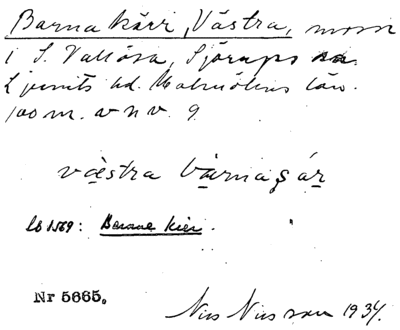 Barnakärr, Västra, mosse
i S. Vallösa, Sjörups sn.
Ljunits hd. Malmöhus län.
100 m. v n v. 9
västra barnaşár
LS 1569: Barnae kier.
Nr 5665.
Nils Nilsson 1934.